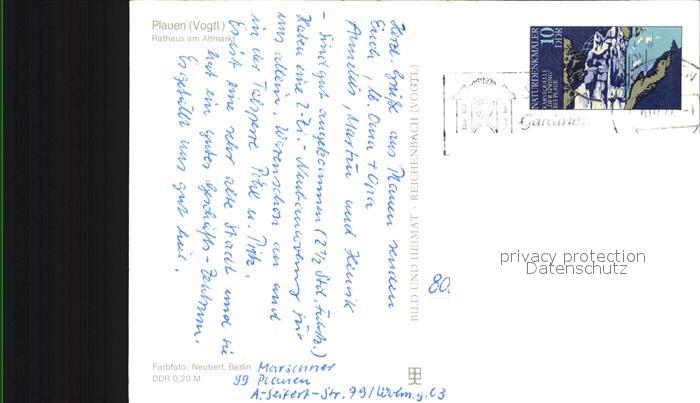 Plauen (Vogtl.)
Rathaus am Altmarkt
Herzl. Grüße aus Plauen senden
Euch, lb. Oma + Opa
Annelies, Martin und Henrik
- Sind gut angekommen (2 1/2 Std. Fahrtz.)
Haben eine 2-Zi.- Neubauwohng für
uns allein, Waren schon an und
in der Talsperre Pöhl u. Pirk.
Es ist eine sehr alte Stadt und sie
hat ein gutes Geschäfts-Zentrum.
Es gefällt uns gut hier.
BILD UND HEIMAT · REICHENBACH (VOGTL)
NATURDENKMÄLER
10
DDR
Gardinen
80.
privacy protection
Datenschutz
Farbfoto: Neubert, Berlin
DDR 0,20 M
Marschner
99 Plauen
A.-Seifert-Str. 99